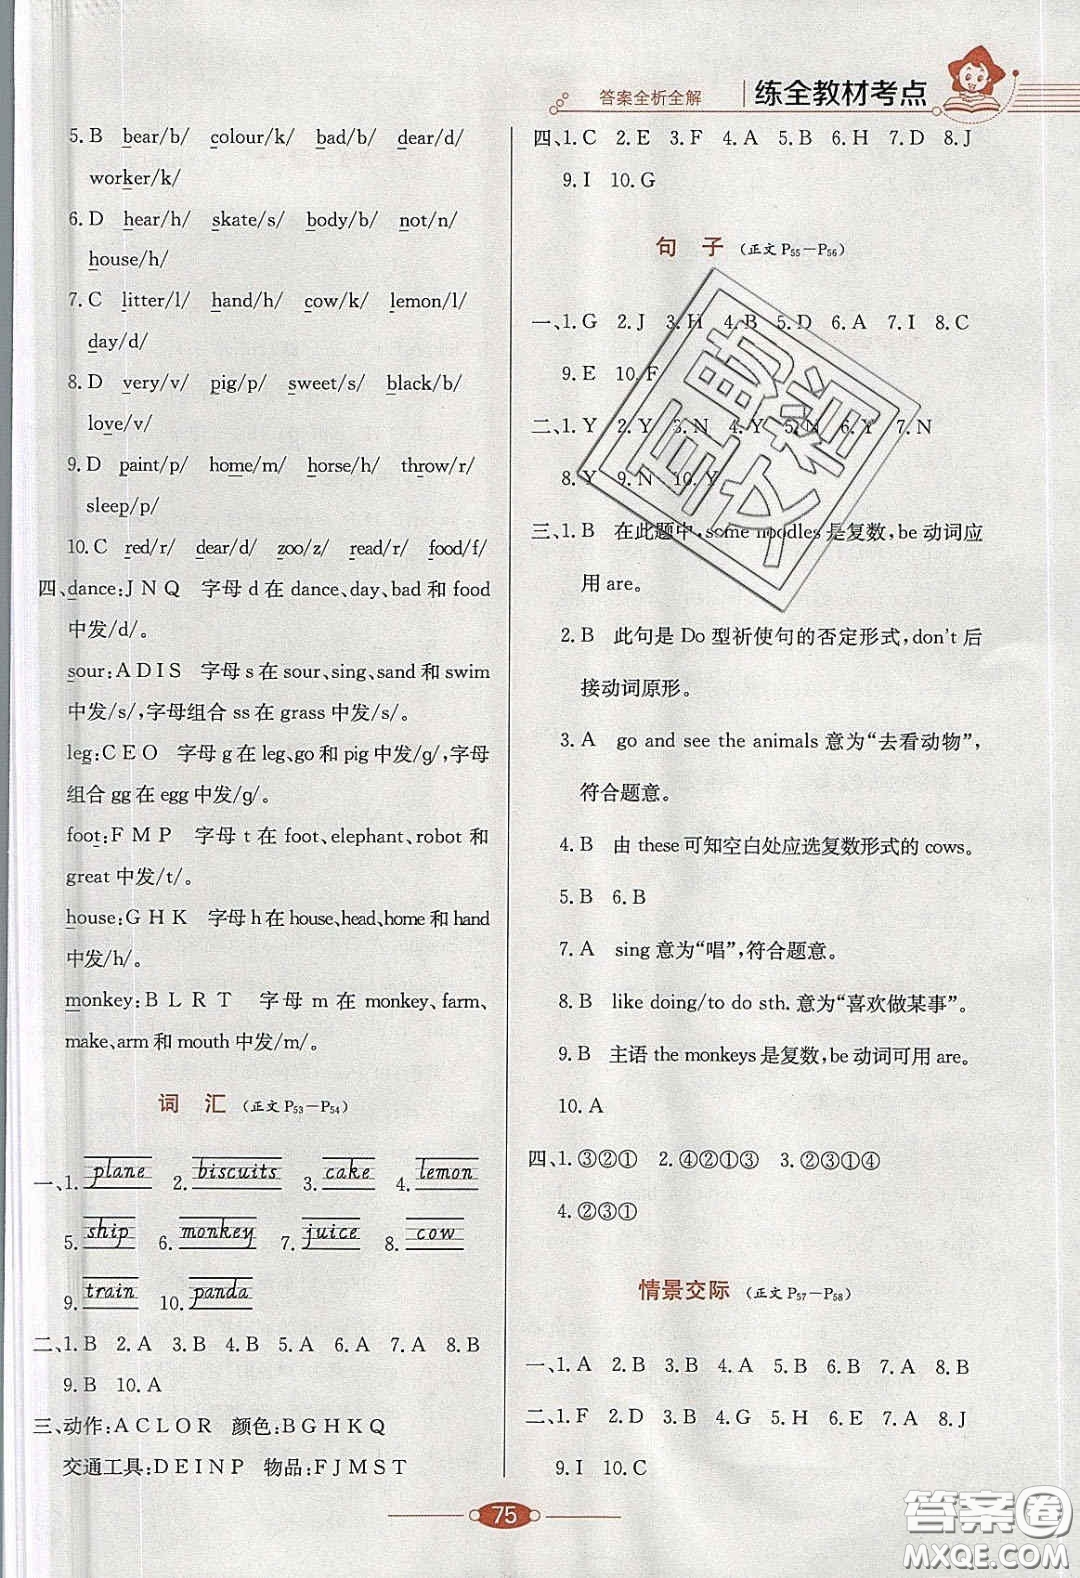 答案全析全解 练全教材考点
5. B bear/b/ colour/k/ bad/b/ dear/d/
worker/k/
6. D hear/h/ skate/s/ body/b/ not/n/
house/h/
7. C litter/l/ hand/h/ cow/k/ lemon/l/
day/d/
8. D very/v/ pig/p/ sweet/s/ black/b/
love/v/
9. D paint/p/ home/m/ horse/h/ throw/r/
sleep/p/
10. C red/r/ dear/d/ zoo/z/ read/r/ food/f/
四、dance:J N Q 字母 d 在 dance、day、bad 和 food
中发/d/。
sour:A D I S 字母 s 在 sour、sing、sand 和 swim
中发/s/,字母组合 ss 在 grass 中发/s/。
leg:C E O 字母 g 在 leg、go 和 pig 中发/g/,字母
组合 gg 在 egg 中发/g/。
foot:F M P 字母 t 在 foot、elephant、robot 和
great 中发/t/。
house:G H K 字母 h 在 house、head、home 和 hand
中发/h/。
monkey:B L R T 字母 m 在 monkey、farm、
make、arm 和 mouth 中发/m/。
词 汇 (正文 P53—P54)
一、1. plane 2. biscuits 3. cake 4. lemon
5. ship 6. monkey 7. juice 8. cow
9. train 10. panda
二、1. B 2. A 3. B 4. B 5. A 6. A 7. A 8. B
9. B 10. A
三、动作:A C L O R 颜色:B G H K Q
交通工具:D E I N P 物品:F J M S T
四、1. C 2. E 3. F 4. A 5. B 6. H 7. D 8. J
9. I 10. G
句 子 (正文 P55—P56)
一、1. G 2. J 3. H 4. B 5. D 6. A 7. I 8. C
9. E 10. F
二、1. Y 2. Y 3. N 4. Y 5. N 6. Y 7. N
8. Y 9. N 10. Y
三、1. B 在此题中,some noodles 是复数,be 动词应
用 are。
2. B 此句是 Do 型祈使句的否定形式,don't 后
接动词原形。
3. A go and see the animals 意为“去看动物”,
符合题意。
4. B 由 these 可知空白处应选复数形式的 cows。
5. B 6. B
7. A sing 意为“唱”,符合题意。
8. B like doing/to do sth. 意为“喜欢做某事”。
9. B 主语 the monkeys 是复数,be 动词可用 are。
10. A
四、1. ③②① 2. ④②①③ 3. ②③①④
4. ②③①
情景交际 (正文 P57—P58)
一、1. A 2. B 3. B 4. B 5. A 6. B 7. A 8. B
二、1. F 2. D 3. B 4. G 5. H 6. E 7. A 8. J
9. I 10. C
75
百助文档
答案圈
MXQE.COM